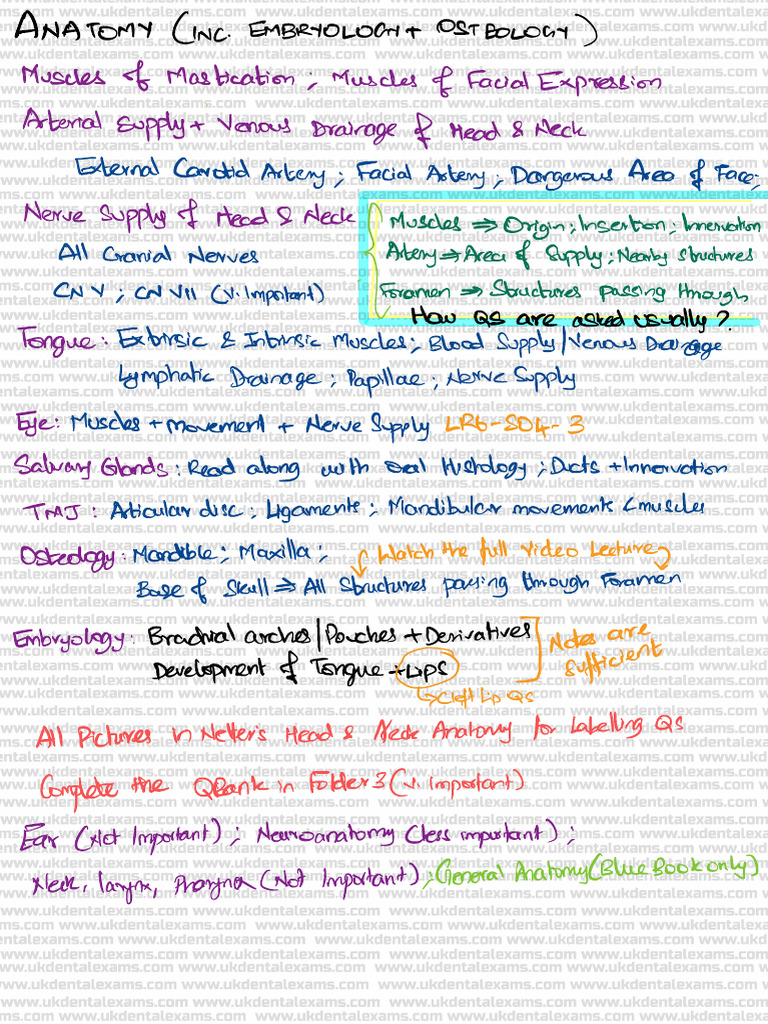 ANATOMY (INC. EMBRYOLOGY + OSTEOLOGY)
Muscles of Mastication ; Muscles of Facial Expression
Arterial Supply + Venous Drainage of Head & Neck
External Carotid Artery ; Facial Artery ; Dangerous Area of Face;
Nerve Supply of Head & Neck
All Cranial Nerves
CN V ; CN VII (V. Important)
Muscles ⇒ Origin ; Insertion ; Innervation
Artery ⇒ Area of Supply ; Nearby structures
Foramen ⇒ Structures passing through
How QS are asked usually ?
Tongue : Extrinsic & Intrinsic Muscles ; Blood Supply / Venous Drainage
Lymphatic Drainage ; Papillae ; Nerve Supply
Eye : Muscles + movement + Nerve Supply LR6-SO4-3
Salivary Glands : Read along with oral Histology ; Ducts + Innervation
TMJ : Articular disc ; Ligaments ; Mandibular movements < muscles
Osteology : Mandible ; Maxilla ; Watch the full Video Lecture
Base of Skull ⇒ All Structures passing through Foramen
Embryology : Brachial arches / Pouches + Derivatives
Development of Tongue + Lips
Notes are sufficient
↳ Cleft Lip QS
All Pictures in Netter's Head & Neck Anatomy for Labelling QS
Complete the QBank in Folder 3 (V. Important)
Ear (Not Important) ; Neuroanatomy (less important) ;
Neck, larynx, Pharynx (Not Important) ; General Anatomy (Blue Book only)
www.ukdentalexams.com